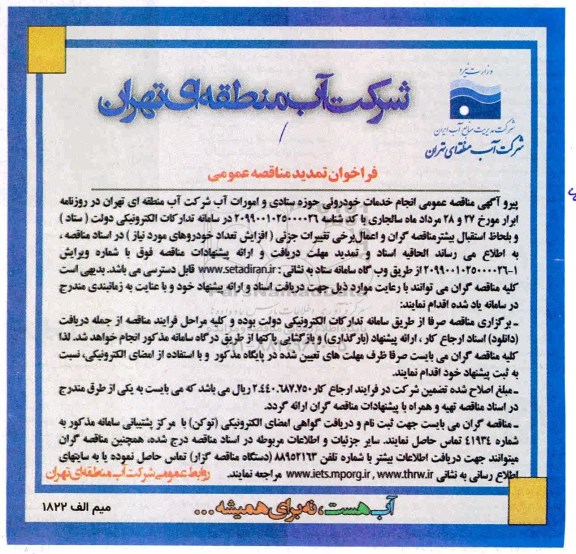 وزارت نیرو
شرکت مدیریت منابع آب ایران
شرکت آب منطقه‌ای تهران
شرکت آب منطقه‌ای تهران
فراخوان تمدید مناقصه عمومی
پیرو آگهی مناقصه عمومی انجام خدمات خودرویی حوزه ستادی و امورات آب شرکت آب منطقه ای تهران در روزنامه
ابرار مورخ ۲۷ و ۲۸ مرداد ماه سالجاری با کد شناسه ۲۰۹۹۰۰۱۰۲۵۰۰۰۰۲۶ در سامانه تدارکات الکترونیکی دولت ( ستاد )
و بلحاظ استقبال بیشتر مناقصه گران و اعمال برخی تغییرات جزئی ( افزایش تعداد خودروهای مورد نیاز ) در اسناد مناقصه ،
به اطلاع می رساند الحاقیه اسناد و تمدید مهلت دریافت و ارائه پیشنهادات مناقصه فوق با شماره ویرایش
۲۰۹۹۰۰۱۰۲۵۰۰۰۰۲۶-۱ از طریق وب گاه سامانه ستاد به نشانی : www.setadiran.ir قابل دسترسی می باشد. بدیهی است
کلیه مناقصه گران می توانند با رعایت موارد ذیل جهت دریافت اسناد و ارائه پیشنهاد خود و با عنایت به زمانبندی مندرج
در سامانه یاد شده اقدام نمایند:
ـ برگزاری مناقصه صرفا از طریق سامانه تدارکات الکترونیکی دولت بوده و کلیه مراحل فرایند مناقصه از جمله دریافت
(دانلود) اسناد ارجاع کار ، ارائه پیشنهاد (بارگذاری) و بازگشایی پاکتها از طریق درگاه سامانه مذکور انجام خواهد شد. لذا
کلیه مناقصه گران می بایست صرفا ظرف مهلت های تعیین شده در پایگاه مذکور و با استفاده از امضای الکترونیکی، نسبت
به ثبت پیشنهاد خود اقدام نمایند.
ـ مبلغ اصلاح شده تضمین شرکت در فرایند ارجاع کار ۲.۴۴۰.۶۸۷.۷۵۰ ریال می باشد که می بایست به یکی از طرق مندرج
در اسناد مناقصه تهیه و همراه با پیشنهادات مناقصه گران ارائه گردد.
ـ مناقصه گران می بایست جهت ثبت نام و دریافت گواهی امضای الکترونیکی (توکن) با مرکز پشتیبانی سامانه مذکور به
شماره ۴۱۹۳۴ تماس حاصل نمایند. سایر جزئیات و اطلاعات مربوطه در اسناد مناقصه درج شده، همچنین مناقصه گران
میتوانند جهت دریافت اطلاعات بیشتر با شماره تلفن ۸۸۹۵۲۱۶۳ (دستگاه مناقصه گزار) تماس حاصل نموده یا به سایتهای
اطلاع رسانی به نشانی www.iets.mporg.ir , www.thrw.ir مراجعه نمایند. روابط عمومی شرکت آب منطقه‌ای تهران
آب هست ، نه برای همیشه ...
میم الف ۱۸۲۲